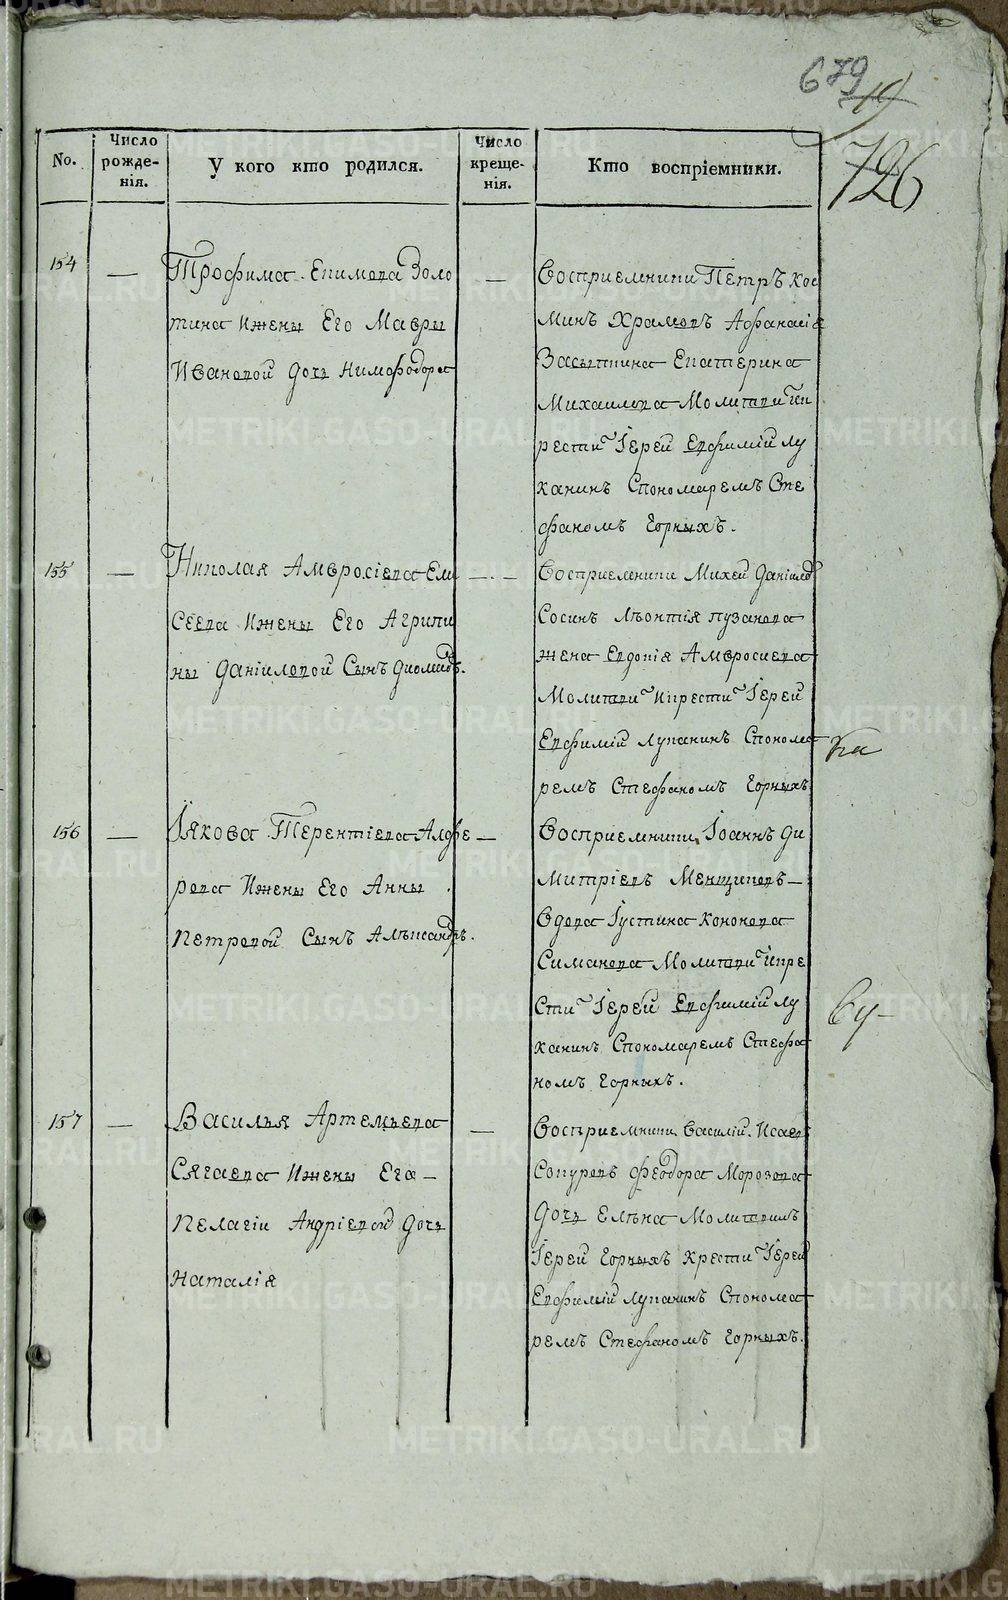 679
19
726
No.
Число рожде-нія.
У кого кто родился.
Число креще-нія.
Кто воспріемники.
154 — Трофима Епимова Золо
тина Ижены Его Мавры
Ивановой дочь Нимфодора
— Восприемники Петръ Кос
минъ Храмовъ Афанасія
Засыпкина Екатерина
Михаилова Молитви
рести Іерей Евфимій Лу
канинъ Спономаремъ Сте
фаномъ Горныхъ.
155 — Николая Амвросіева Ели
сеева Ижены Его Агрипи
ны Даниловой Сынъ Диомидъ.
— Восприемники Михей Даніилов
Сосинъ Леонтія Пузанова
жена Евдокія Амвросиева
Молитви Икрести Іерей
Евфимій Луканинъ Спонома
ремъ Стефаномъ Горныхъ
ка
156 — Іякова Терентіева Алфе
рова Ижены Его Анны
Петровой Сынъ Алѣксандръ.
— Восприемники Іоаннъ Ди
митріевъ Менщиковъ —
Вдова Іустина Кононова
Симанова Молитви Икре
сти Іерей Евфимій Лу
канинъ Спономаремъ Стефа
номъ Горныхъ.
157 — Василья Артемьева
Сягаева Ижены Его —
Пелагіи Андріевой дочь
Наталія
— Восприемники Василій Исаевъ
Сокуровъ Феодора Морозова
дочь Елѣна Молитвилъ
Іерей Горныхъ Крести Іерей
Евфимій Луканинъ Спонома
ремъ Стефаномъ Горныхъ.
METRIKI.GASO-URAL.RU